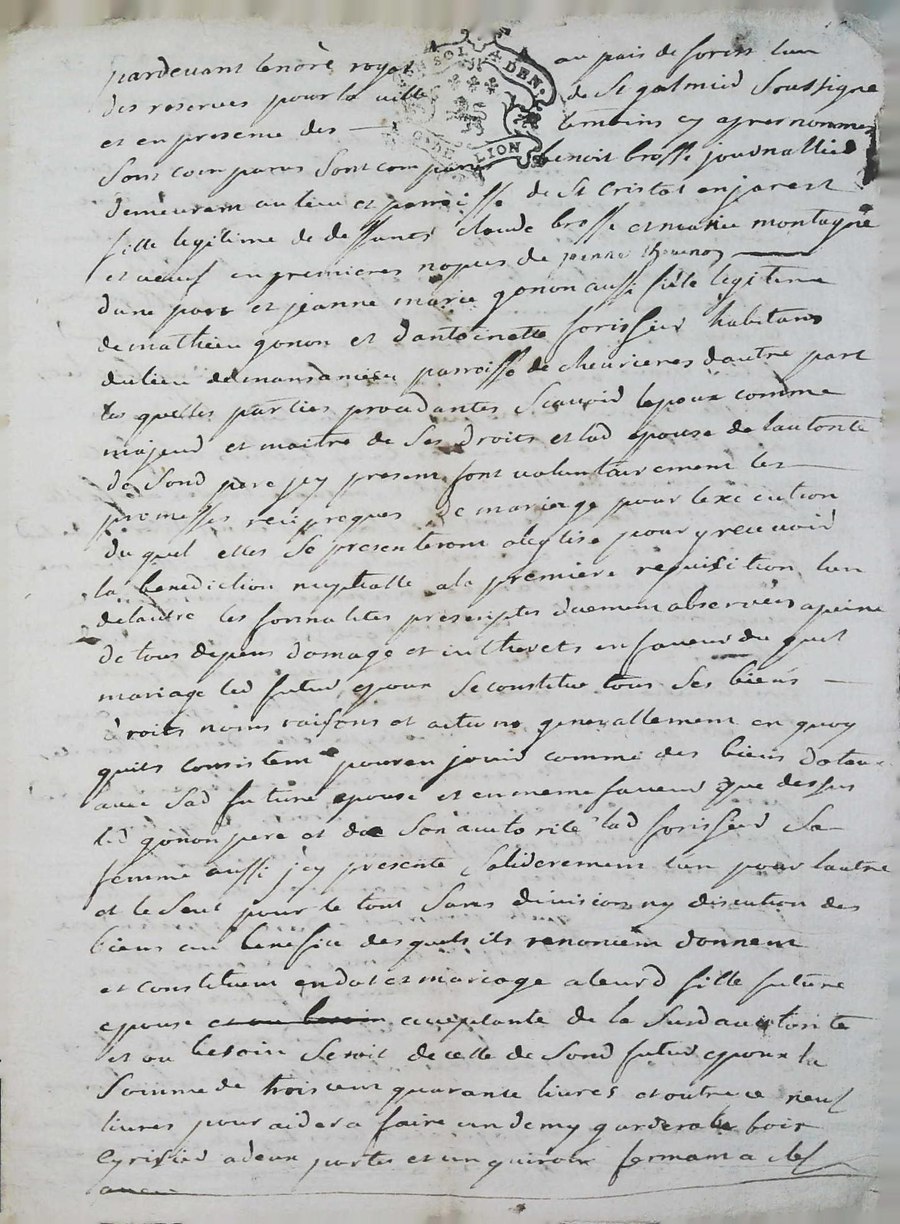 pardevant le no.re royal au pais de forest lun
des reserves pour la ville de St galmied Soussigne
et en presence des temoins cy apres nommes
SOL DEN.
G. DE LION
Sont comparus benoit brosse journallied
demeurant au lieu et parroisse de St Cristot en jarest
fils legitime de deffunts claude brosse et marie montagne
et veuf en premieres nopces de
dune part et jeanne marie gonon aussi fille legitime
de mathieu gonon et dantoinette forissied habitans
du lieu de parroisse de chevrieres dautre part
les quelles parties procedantes Scavoid lepoux comme
majeud et maitre de Ses droits et lad epouse de lautorité
de Sond pere jcy present font volontairement les
promesses reciproques de mariage pour lexecution
du quel elles Se presenteront a leglise pour y recevoid
la benediction nuptialle a la premiere requisition lun
de lautre les formalites prescriptes duement observées a peine
de tous depens domage et intherets en faveur du quel
mariage led futud epoux Se constitue tous Ses biens
droits noms raisons et actions generallement en quoy
quils consistent pour en jouid comme des biens dotaux
avec Sad future epouse et en meme faveur que dessus
led gonon pere et de Son autorité lad forissied Sa
femme aussi jcy presente Soliderement lun pour lautre
et le Seul pour le tout Sans division ny discution des
biens au benefice des quels ils renoncent donnent
et constituent en dot et mariage a leurd fille future
epouse et au besoin acceptante de la Susd autorité
et au besoin Seroit de celle de Sond futud epoux la
Somme de trois cent quarante livres et outre ce neuf
livres pour aider a faire un demy garderobe bois
cyrisied a deux portes et un tiroir fermant a clef